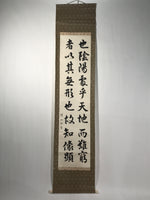 也陰陽處乎天地而難窮
者以其無形也故知像顯